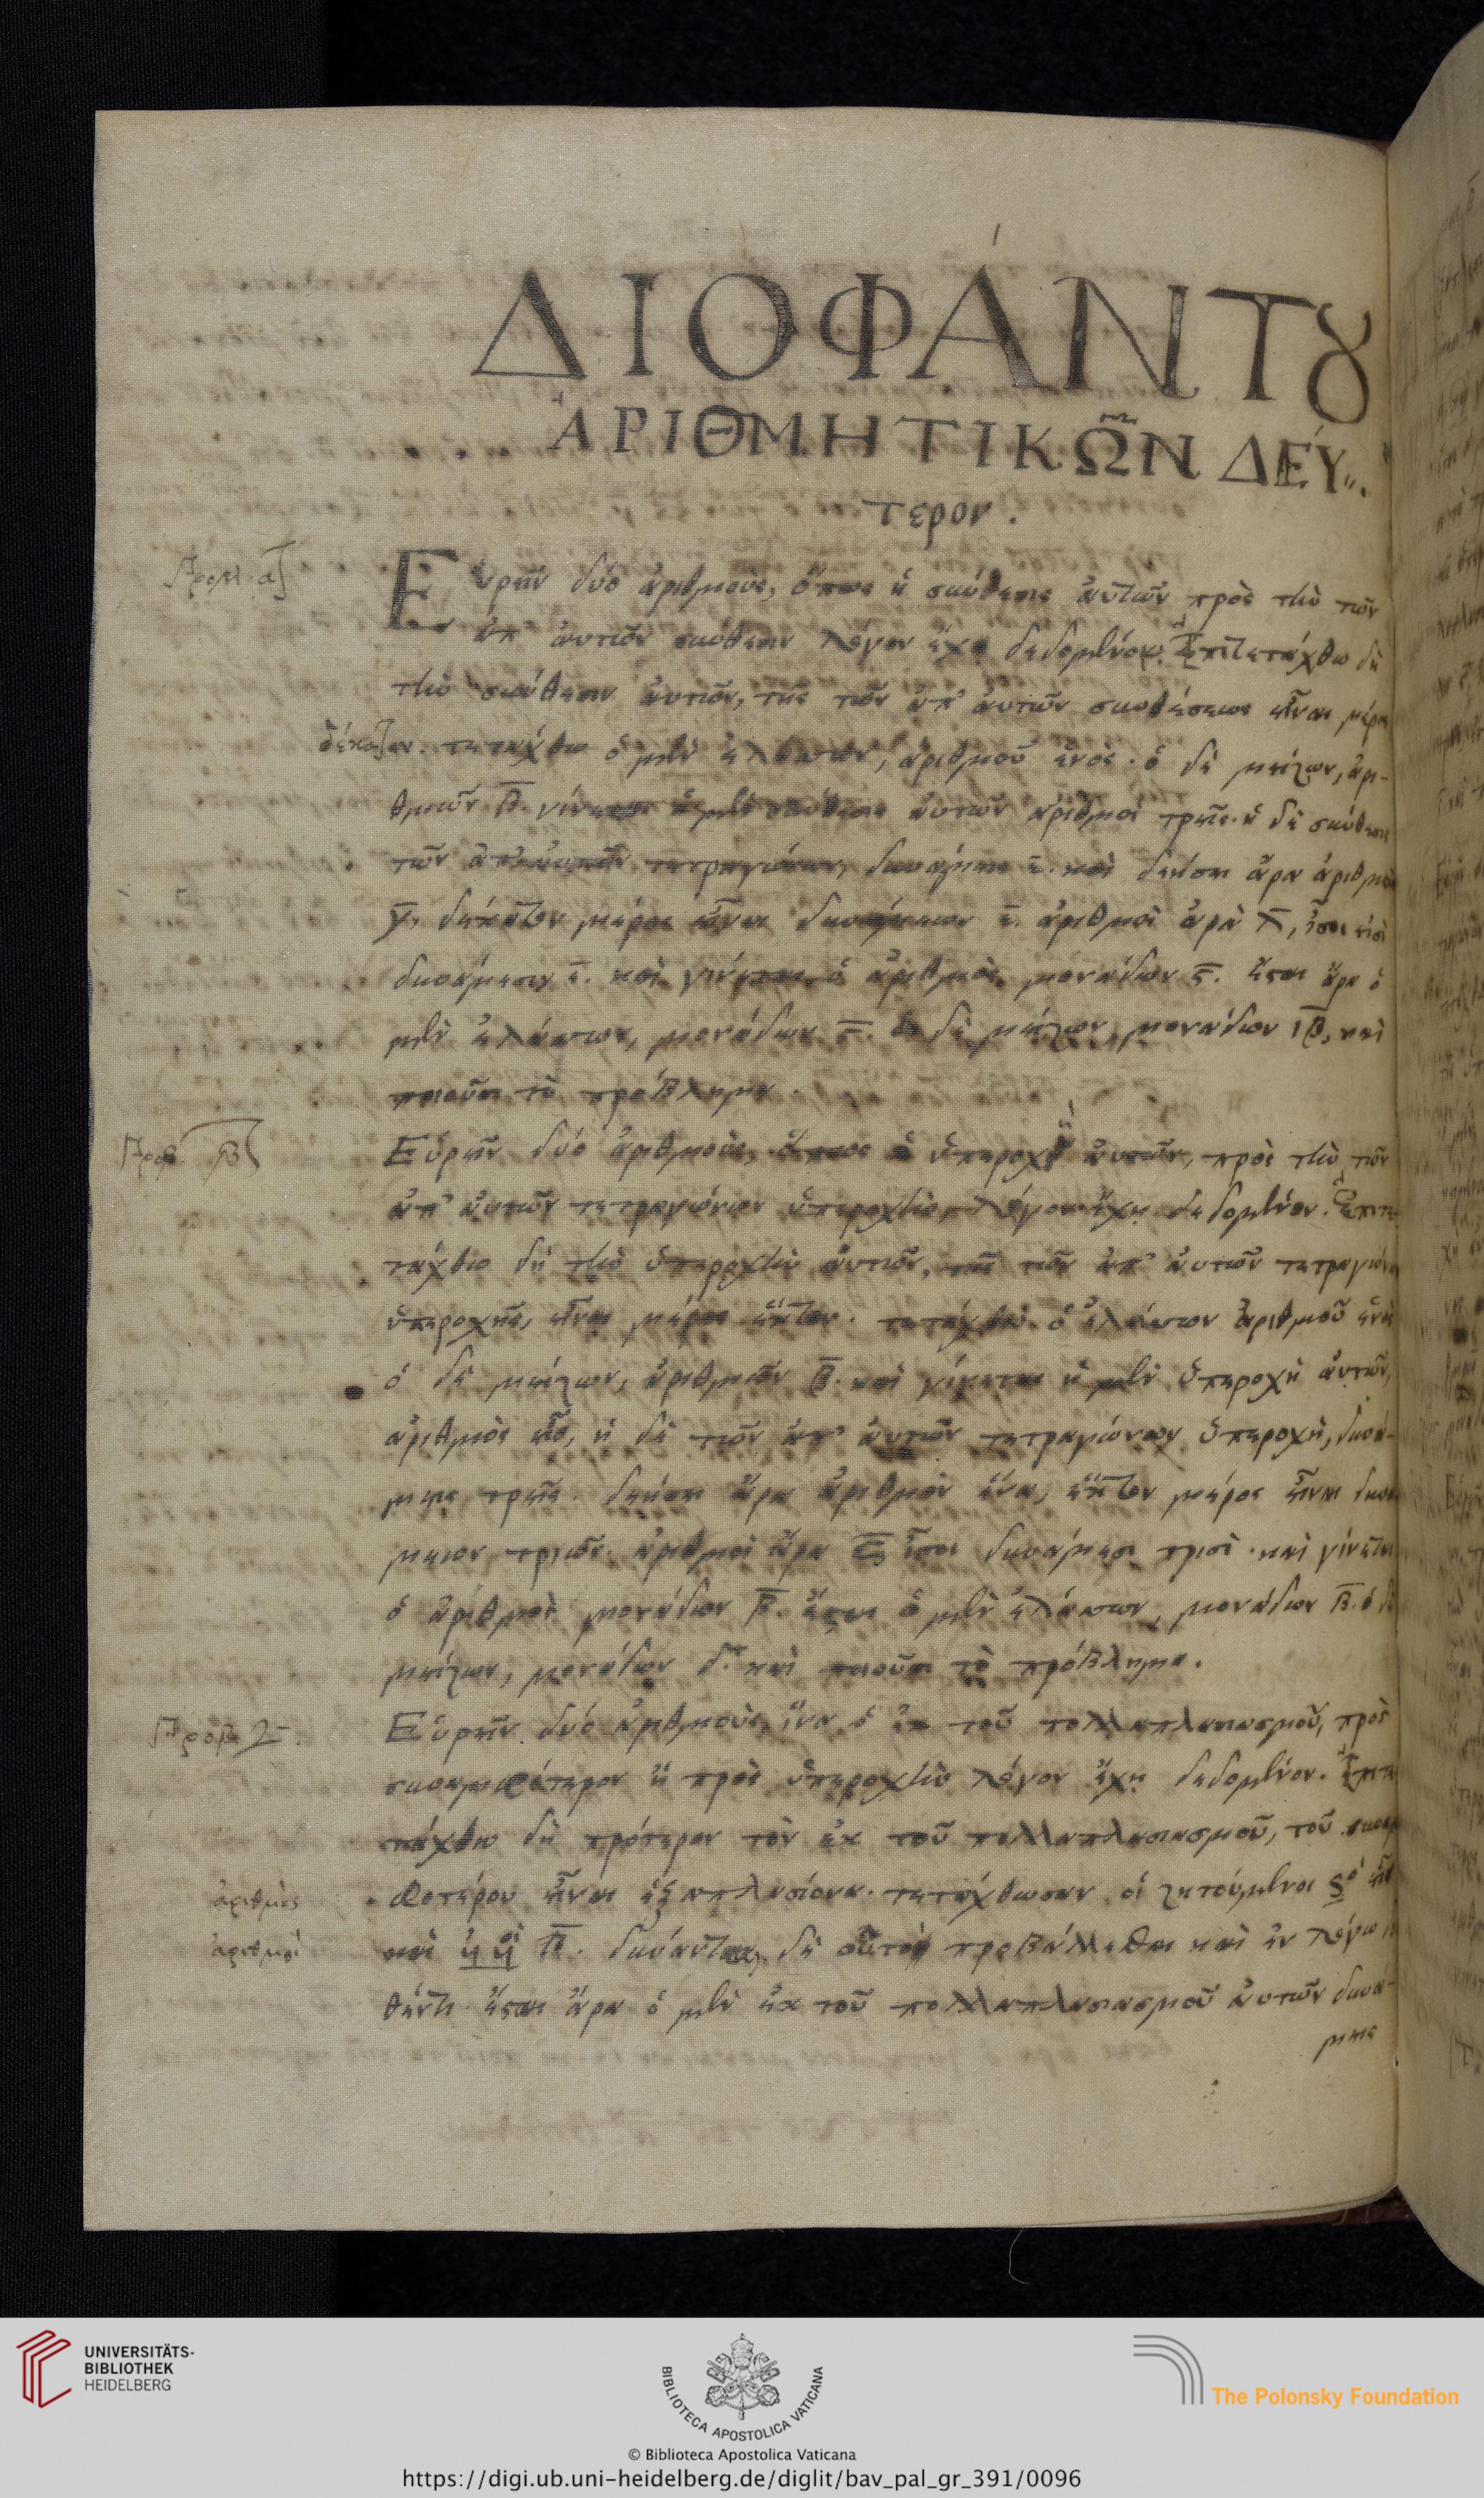 ΔΙΟΦΆΝΤȢ
ἈΡΙΘΜΗΤΙΚΩ͂Ν ΔΕΎ„.
τερον.
Προβλ. α
Εὑρεῖν δύο ἀριθμοὺς, ὅπως ἡ σύνθεσις ἀυτῶν πρὸς τὴν τῶν
ἀπ' ἀυτῶν σύνθεσιν λόγον ἔχῃ δεδομένον. Ἐπιτετάχθω δὴ
τὴν σύνθεσιν ἀυτῶν, τῆς τῶν ἀπ' ἀυτῶν συνθέσεως εἶναι μέρος
δέκατον. τετάχθω ὁ μὲν ἐλάσσων, ἀριθμοῦ ἑνὸς. ὁ δὲ μείζων, ἀρι-
θμῶν β. γίνεται ἡ μὲν σύνθεσις ἀυτῶν ἀριθμοὶ τρεῖς. ἡ δὲ σύνθεσις
τῶν ἀπ' ἀυτῶν τετραγώνων, δυνάμεις ε. καὶ δεήσει ἄρα ἀριθμοὺς
γ, δέκατον μέρος εἶναι δυνάμεων ε. ἀριθμοὶ ἄρα λ, ἴσοι εἰσὶ
δυνάμεσιν ε. καὶ γίνεται ὁ ἀριθμὸς, μονάδων ς. ἔσται ἄρα ὁ
μὲν ἐλάσσων, μονάδων ς. ὁ δὲ μείζων, μονάδων ιβ, καὶ
ποιοῦσι τὸ πρόβλημα.
Προβ. β
Εὑρεῖν δύο ἀριθμοὺς, ὅπως ἡ ὑπεροχὴ ἀυτῶν, πρὸς τὴν τῶν
ἀπ' ἀυτῶν τετραγώνων ὑπεροχὴν, λόγον ἔχῃ δεδομένον. Ἐπιτε-
τάχθω δὴ τὴν ὑπεροχὴν ἀυτῶν, τῆς τῶν ἀπ' ἀυτῶν τετραγώνων
ὑπεροχῆς, εἶναι μέρος ἕκτον. τετάχθω ὁ ἐλάσσων ἀριθμοῦ ἑνὸς
ὁ δὲ μείζων, ἀριθμῶν β. καὶ γίνεται ἡ μὲν ὑπεροχὴ ἀυτῶν,
ἀριθμὸς εἷς, ἡ δὲ τῶν ἀπ' ἀυτῶν τετραγώνων ὑπεροχὴ, δυνά-
μεις τρεῖς. δεήσει ἄρα ἀριθμὸν ἕνα, ἕκτον μέρος εἶναι δυνά
μεων τριῶν. ἀριθμοὶ ἄρα ς ἴσοι δυνάμεσι τρισὶ. καὶ γίνεται
ὁ ἀριθμὸς μονάδων β. ἔσται ὁ μὲν ἐλάσσων, μονάδων β. ὁ δὲ
μείζων, μονάδων δ. καὶ ποιοῦσι τὸ πρόβλημα.
Προβ.
Εὑρεῖν δύο ἀριθμοὺς, ἵνα ὁ ἐκ τοῦ πολλαπλασιασμοῦ, πρὸς
συναμφότερον ἢ πρὸς ὑπεροχὴν λόγον ἔχῃ δεδομένον. Ἐπιτε
τάχθω δὴ πρότερον τὸν ἐκ τοῦ πολλαπλασιασμοῦ, τοῦ συναμ
φοτέρου εἶναι ἑξαπλασίονα. τετάχθωσαν οἱ ζητούμενοι ςὸς εἷς
ἀριθμὸς
καὶ ςς οὶ β. δυνάντωσαν δὲ οὗτοι προβάλλεσθαι καὶ ἐν λόγῳ
ἀριθμοὶ
θέντι. ἔσται ἄρα ὁ μὲν ἐκ τοῦ πολλαπλασιασμοῦ ἀυτῶν δυνά-
μεις
UNIVERSITÄTS-
BIBLIOTHEK
HEIDELBERG
BIBLIOTECA APOSTOLICA VATICANA
The Polonsky Foundation
© Biblioteca Apostolica Vaticana
https://digi.ub.uni-heidelberg.de/diglit/bav_pal_gr_391/0096